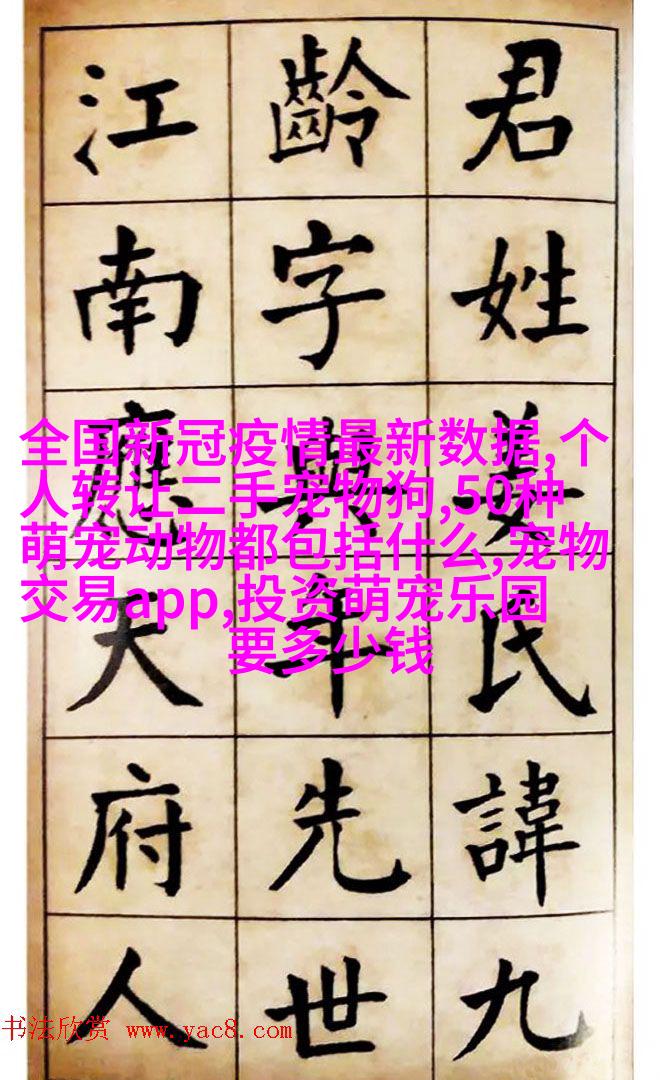 君姓姜氏諱九
齡字與年先世
江南應天府人
全国新冠疫情最新数据,个
人转让二手宠物狗,50种
萌宠动物都包括什么,宠物
交易app,投资萌宠乐园
要多少钱
书法欣赏 www.yac8.com